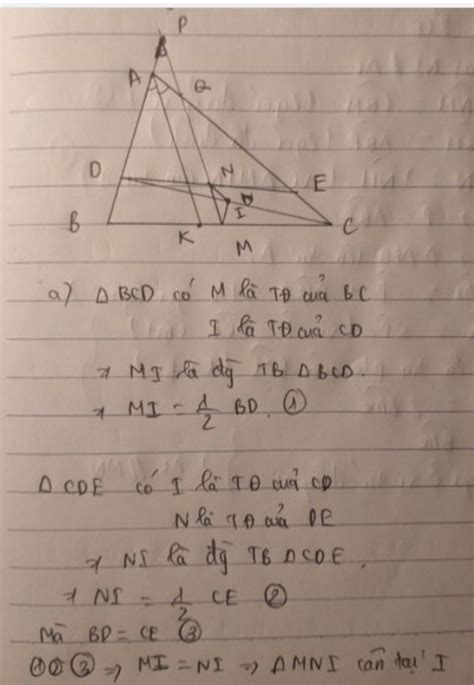 P
A
Q
D
N
E
B
I
C
K
M
a) Δ BCD có M là TĐ của BC
I là TĐ của CD
⇒ MI là đg̃ TB Δ BCD.
⇒ MI = 1/2 BD. ①
Δ CDE có I là TĐ của CD
N là TĐ của DE
⇒ NI là đg̃ TB Δ CDE.
⇒ NI = 1/2 CE ②
Mà BD = CE ③
①②③ ⇒ MI = NI ⇒ Δ MNI cân tại I